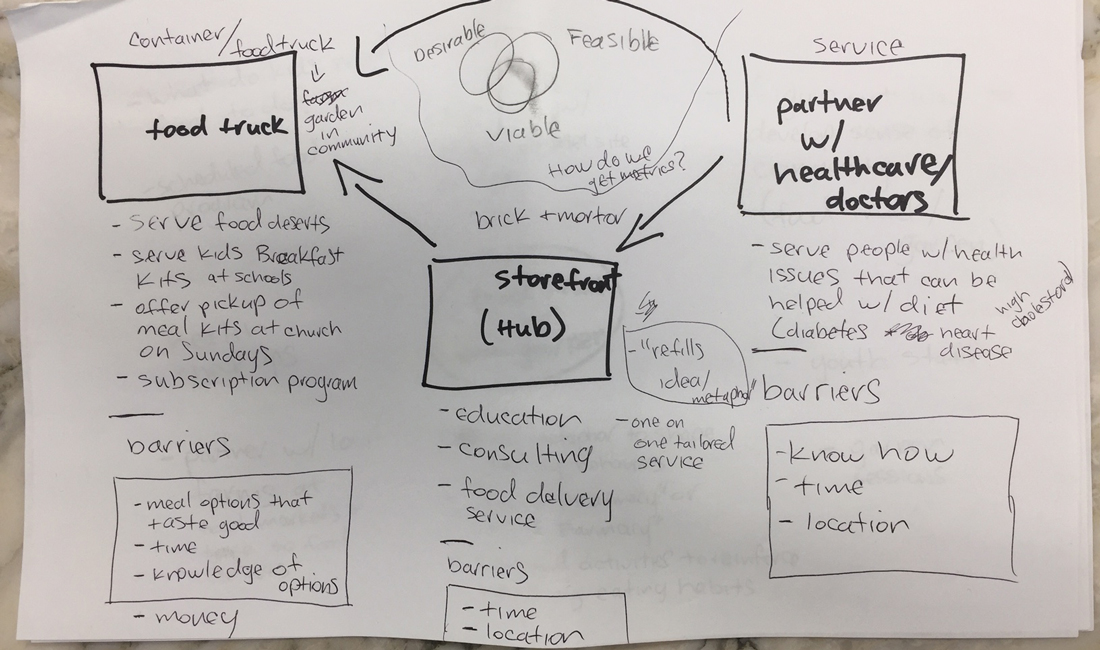 container/foodtruck
food truck
garden
in
community
- serve food deserts
- serve kids Breakfast
kits at schools
- offer pickup of
meal kits at church
on Sundays
- subscription program
barriers
- meal options that
taste good
- time
- knowledge of
options
- money
Desirable
Feasible
viable
How do we
get metrics?
brick + mortor
storefront
(Hub)
- "refills
idea/
metaphor"
- education
- consulting
- food delivery
service
- one on
one tailored
service
barriers
- time
- location
service
partner
w/
healthcare/
doctors
- serve people w/health
issues that can be
helped w/ diet
(diabetes heart
disease
high
cholesterol
barriers
- know how
- time
- location